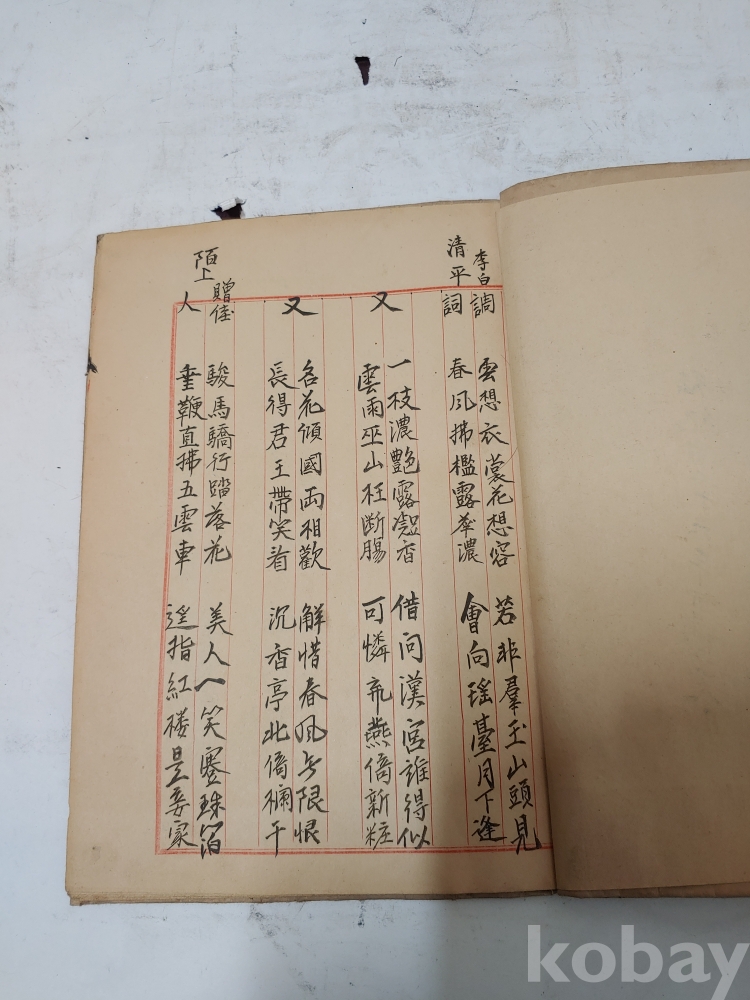 李白
清平調詞
雲想衣裳花想容
春風拂檻露華濃
若非羣玉山頭見
會向瑶臺月下逢
又
一枝濃艶露凝香
雲雨巫山枉断腸
借问漢宫誰得似
可憐飛燕倚新粧
又
名花傾國両相歡
長得君王帶笑看
解惜春風无限恨
沉香亭北倚欄干
陌上贈佳人
駿馬驕行踏落花
垂鞭直拂五雲車
美人一笑褰珠箔
遥指紅楼是妾家
kobay